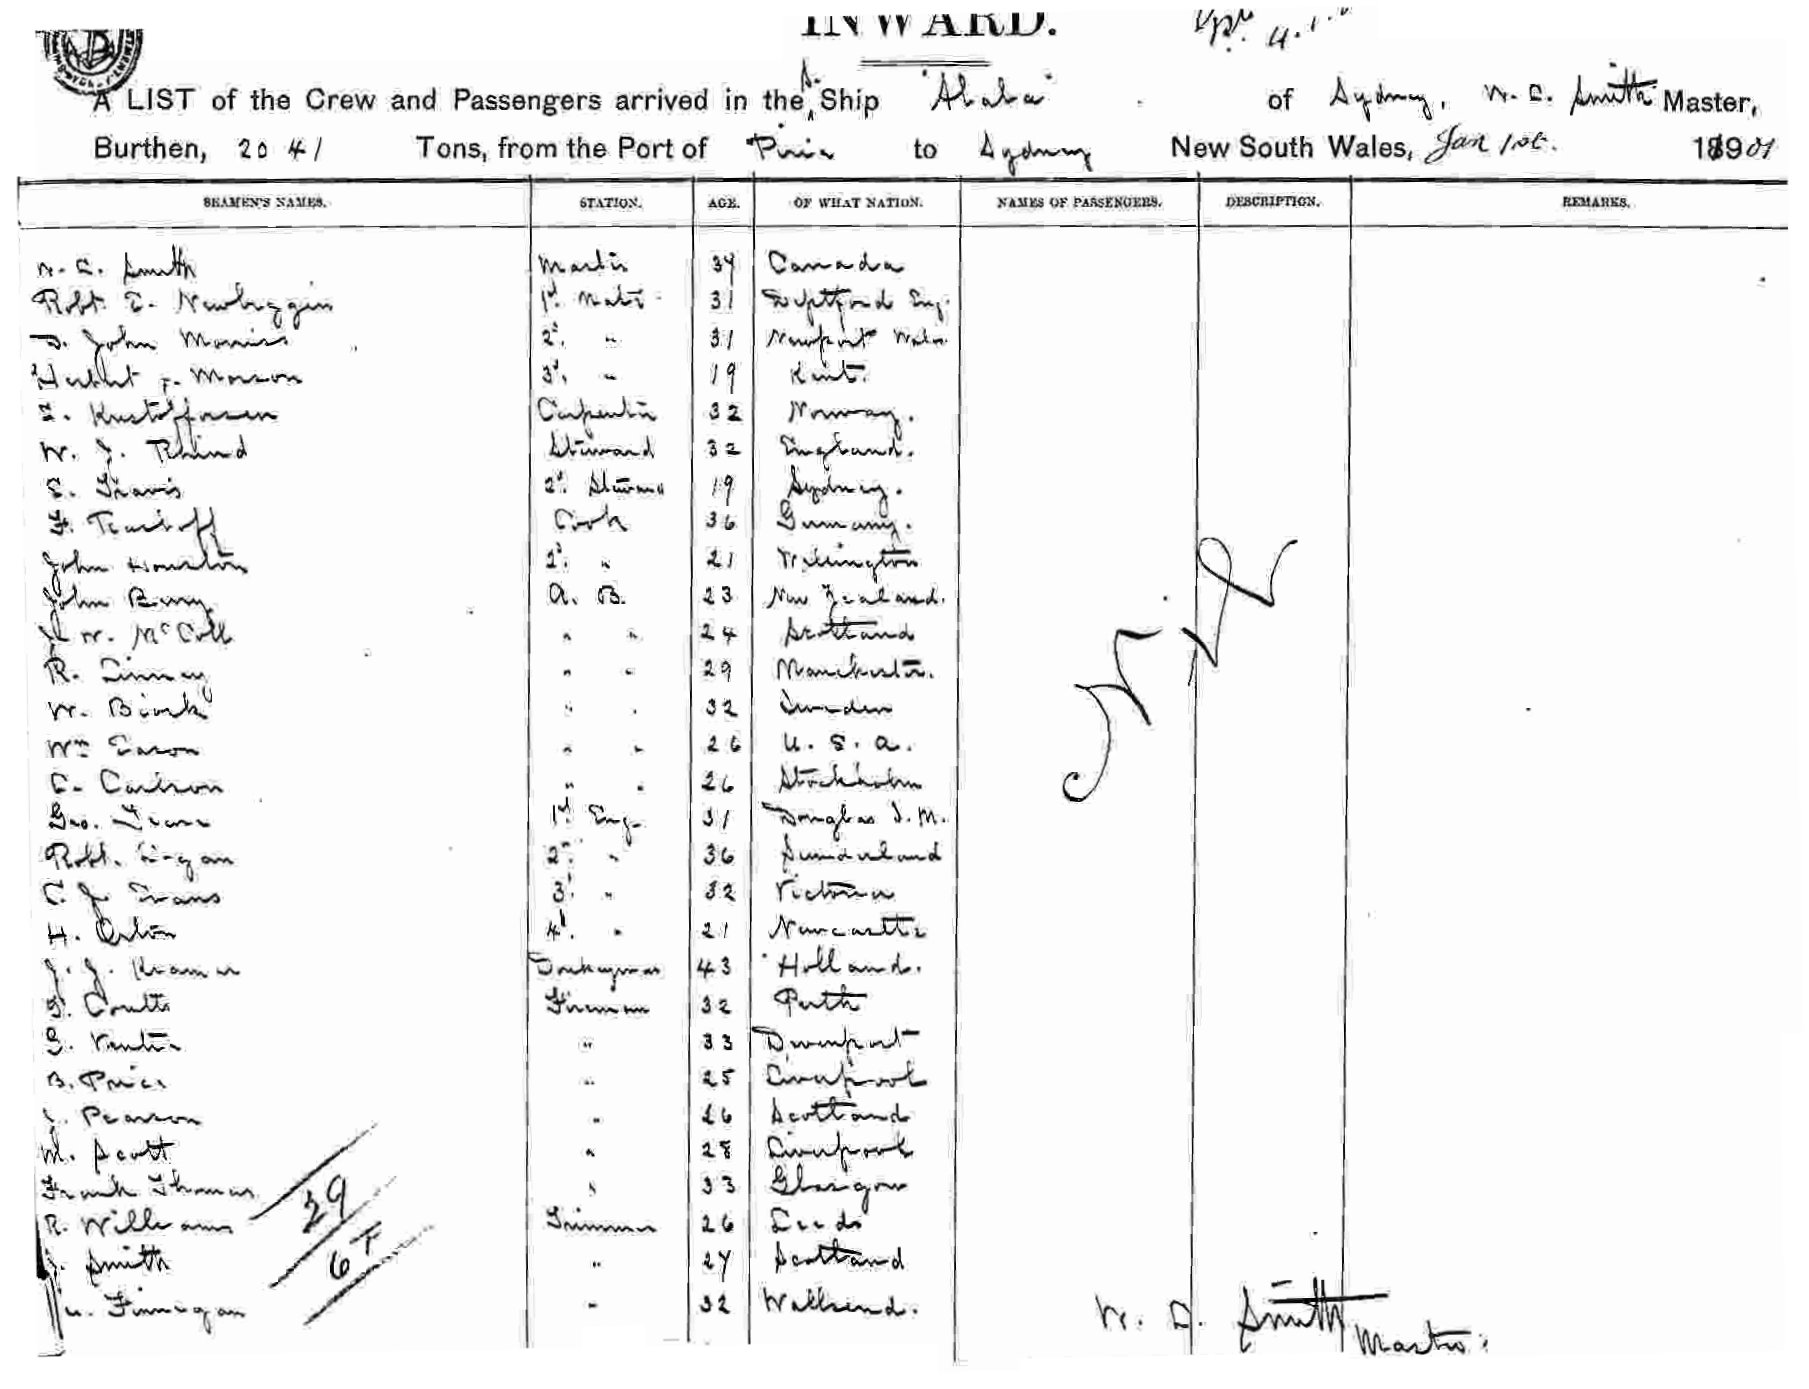 INWARD.
A LIST of the Crew and Passengers arrived in the S. Ship "Ababa" of Sydney, W. C. Smith Master,
Burthen, 2041 Tons, from the Port of Pirie to Sydney New South Wales, Jan 1st. 1901
SEAMEN'S NAMES. STATION. AGE. OF WHAT NATION. NAMES OF PASSENGERS. DESCRIPTION. REMARKS.
W. C. Smith Master 34 Canada
Robt. E. Newbiggin 1st Mate 31 Deptford Eng.
D. John Morris 2d. " 31 Newport Wales
Herbert F. Morson 3d. " 19 Kent.
Kristoffersen Carpenter 32 Norway.
W. J. Rhind Steward 32 England.
E. Travis 2d. Steward 19 Sydney.
F. Cook 36 Germany.
John Houston 2d. " 21 Wellington
John Berry A. B. 23 New Zealand.
J. W. McColl " " 24 Scotland
R. " " 29 Manchester.
W. Biork " " 32 Sweden
Wm Eason " " 26 U. S. A.
C. Carlson " " 26 Stockholm
Geo. 1st Eng. 31 Douglas I. M.
Robt. " 36 Sunderland
C. J. Evans 3d. " 32 Victoria
H. Orton 4th. " 21 Newcastle
J. J. Kramer Donkeyman 43 Holland.
Coutts Fireman 32 Perth
G. Venter " 33 Devonport
B. Price " 25 Liverpool
J. Pearson " 26 Scotland
M. Scott " 28 Liverpool
Frank Thomas " 33 Glasgow
R. Williams Trimmer 26 Leeds
J. Smith " 27 Scotland
Finnegan " 32 Wallsend.
Nil
29
6 F
W. C. Smith
Master.